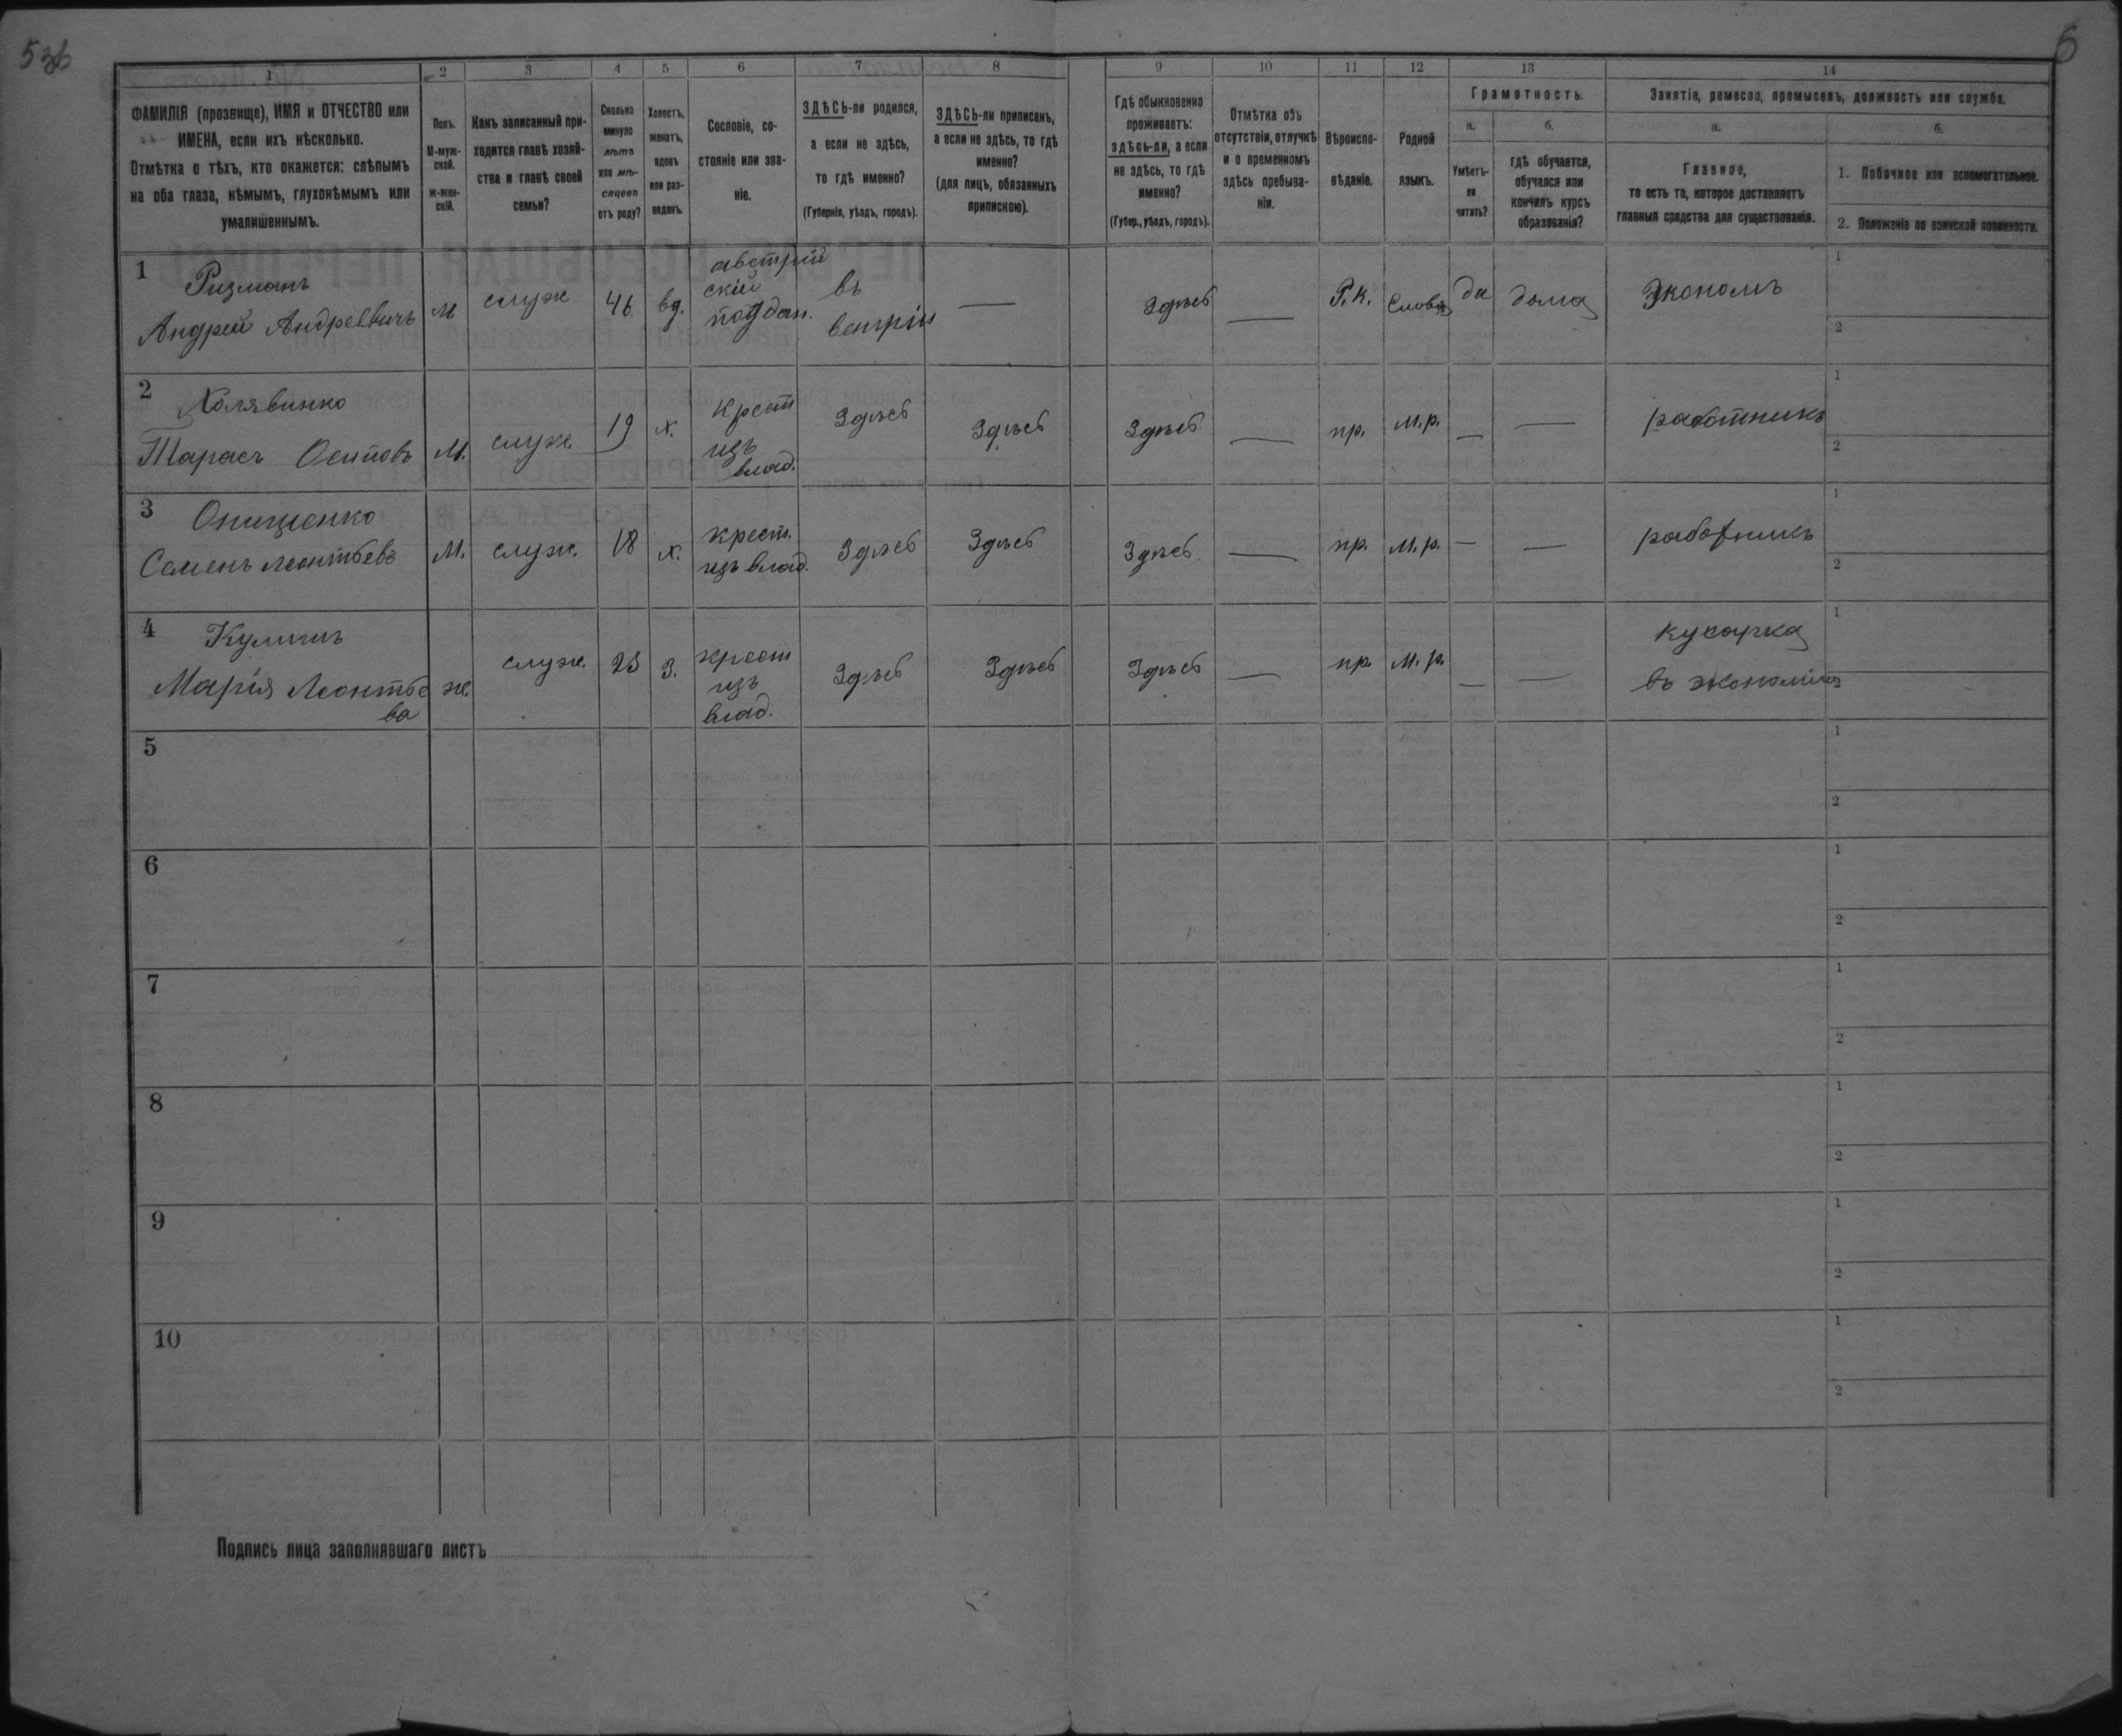 6
1 2 3 4 5 6 7 8 9 10 11 12 13 14
ФАМИЛІЯ (прозвище), ИМЯ и ОТЧЕСТВО или
ИМЕНА, если ихъ нѣсколько.
Отмѣтка о тѣхъ, кто окажется: слѣпымъ
на оба глаза, нѣмымъ, глухонѣмымъ или
умалишеннымъ.
Полъ.
М-муж-
ской.
ж-жен-
скій.
Какъ записанный при-
ходится главѣ хозяй-
ства и главѣ своей
семьи?
Сколько
минуло
лѣтъ
или мѣ-
сяцевъ
отъ роду?
Холостъ,
женатъ,
вдовъ
или раз-
веденъ.
Сословіе, со-
стояніе или зва-
ніе.
ЗДѢСЬ-ли родился,
а если не здѣсь,
то гдѣ именно?
(Губернія, уѣздъ, городъ).
ЗДѢСЬ-ли приписанъ,
а если не здѣсь, то гдѣ
именно?
(для лицъ, обязанныхъ
припискою).
Гдѣ обыкновенно
проживаетъ:
здѣсь-ли, а если
не здѣсь, то гдѣ
именно?
(Губер., уѣздъ, городъ).
Отмѣтка объ
отсутствіи, отлучкѣ
и о временномъ
здѣсь пребыва-
ніи.
Вѣроиспо-
вѣданіе.
Родной
языкъ.
Грамотность.
а.
Умѣетъ-
ли
читать?
б.
гдѣ обучается,
обучался или
кончилъ курсъ
образованія?
Занятіе, ремесло, промыселъ, должность или служба.
а.
Главное,
то есть то, которое доставляетъ
главныя средства для существованія.
б.
1. Побочное или вспомогательное.
2. Положеніе по воинской повинности.
1
Ризманъ
Андрей Андреевичъ
М
служ
46
вд.
австрій
скій
поддан.
въ
венгріи
—
Здѣсь
—
Р.К.
да
дома
Экономъ
1
2
2
Холявинко
Тарасъ Осиповъ
М.
служ.
19
х.
Крест
изъ
влад.
Здѣсь
Здѣсь
Здѣсь
—
пр.
м.р.
—
—
работникъ
1
2
3
Онищенко
Семенъ Леонтьевъ
М.
служ.
18
х.
крест.
изъ влад.
Здѣсь
Здѣсь
Здѣсь
—
пр.
М.р.
—
—
работникъ
1
2
4
Марія Леонтье
ва
ж.
служ.
23
З.
крест
изъ
влад.
Здѣсь
Здѣсь
Здѣсь
—
пр.
М.р.
—
—
кухарка
въ экономіи
1
2
5
1
2
6
1
2
7
1
2
8
1
2
9
1
2
10
1
2
Подпись лица заполнявшаго листъ